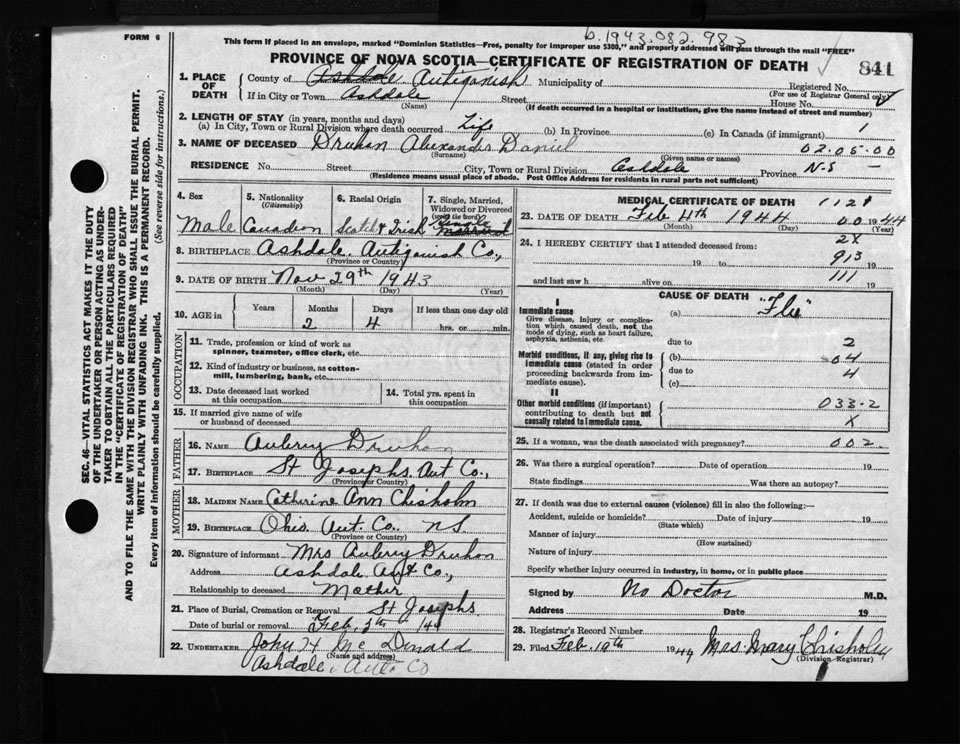 b. 1943.082.983
FORM 6
This form If placed in an envelope, marked "Dominion Statistics—Free, penalty for improper use $300," and properly addressed will pass through the mail "FREE"
PROVINCE OF NOVA SCOTIA—CERTIFICATE OF REGISTRATION OF DEATH
841
1. PLACE OF DEATH
County of Ashdale Antigonish Municipality of Registered No.
(For use of Registrar General only)
If in City or Town Ashdale Street House No.
(Name) (If death occurred in a hospital or institution, give the name instead of street and number)
2. LENGTH OF STAY (in years, months and days)
(a) In City, Town or Rural Division where death occurred Life (b) In Province (c) In Canada (if immigrant) 1
3. NAME OF DECEASED Druhan Alexander Daniel 02.05.00
(Surname) (Given name or names)
RESIDENCE No. Street City, Town or Rural Division Ashdale Province N-S
(Residence means usual place of abode. Post Office Address for residents in rural parts not sufficient)
4. Sex
Male
5. Nationality (Citizenship)
Canadian
6. Racial Origin
Scotch & Irish
7. Single, Married, Widowed or Divorced
(write the word)
Single
8. BIRTHPLACE Ashdale Antigonish Co.,
(Province or Country)
9. DATE OF BIRTH Nov 29th 1943
(Month) (Day) (Year)
10. AGE in Years Months Days If less than one day old
2 4 hrs. or min.
OCCUPATION
11. Trade, profession or kind of work as spinner, teamster, office clerk, etc.
12. Kind of industry or business, as cotton-mill, lumbering, bank, etc.
13. Date deceased last worked at this occupation
14. Total yrs. spent in this occupation
15. If married give name of wife or husband of deceased
FATHER
16. NAME Aubrey Druhan
17. BIRTHPLACE St Josephs. Ant Co.,
(Province or Country)
MOTHER
18. MAIDEN NAME Catherine Ann Chisholm
19. BIRTHPLACE Ohio. Ant. Co. NS
(Province or Country)
20. Signature of informant Mrs Aubrey Druhan
Address Ashdale Ant Co.,
Relationship to deceased Mother
21. Place of Burial, Cremation or Removal St Josephs
Date of burial or removal Feb. 44
22. UNDERTAKER John H Mc Donald
(Name and address)
Ashdale, Ant Co
MEDICAL CERTIFICATE OF DEATH 1121
23. DATE OF DEATH Feb 4th 1944 00 19 44
(Month) (Day) (Year)
24. I HEREBY CERTIFY that I attended deceased from:
2X
913
19 to 19
111
and last saw h alive on 19
CAUSE OF DEATH
I
Immediate cause
Give disease, injury or complication which caused death, not the mode of dying, such as heart failure, asphyxia, asthenia, etc.
(a) "Flu"
due to 2
Morbid conditions, if any, giving rise to immediate cause (stated in order proceeding backwards from immediate cause).
(b) 04
due to 4
(c)
II
Other morbid conditions (if important) contributing to death but not causally related to immediate cause.
033-2
X
25. If a woman, was the death associated with pregnancy? 002
26. Was there a surgical operation? Date of operation 19
State findings Was there an autopsy?
27. If death was due to external causes (violence) fill in also the following:—
Accident, suicide or homicide? Date of injury 19
(State which)
Manner of injury
(How sustained)
Nature of injury
Specify whether injury occurred in industry, in home, or in public place
Signed by No Doctor M.D.
Address Date 19
28. Registrar's Record Number
29. Filed Feb. 19th 1944 Mrs. Mary Chisholm
(Division Registrar)
SEC. 46—VITAL STATISTICS ACT MAKES IT THE DUTY
OF THE UNDERTAKER OR PERSON ACTING AS UNDER-
TAKER TO OBTAIN ALL THE PARTICULARS REQUIRED
IN THE "CERTIFICATE OF REGISTRATION OF DEATH"
AND TO FILE THE SAME WITH THE DIVISION REGISTRAR WHO SHALL ISSUE THE BURIAL PERMIT.
WRITE PLAINLY WITH UNFADING INK. THIS IS A PERMANENT RECORD.
Every item of Information should be carefully supplied. (See reverse side for instructions.)